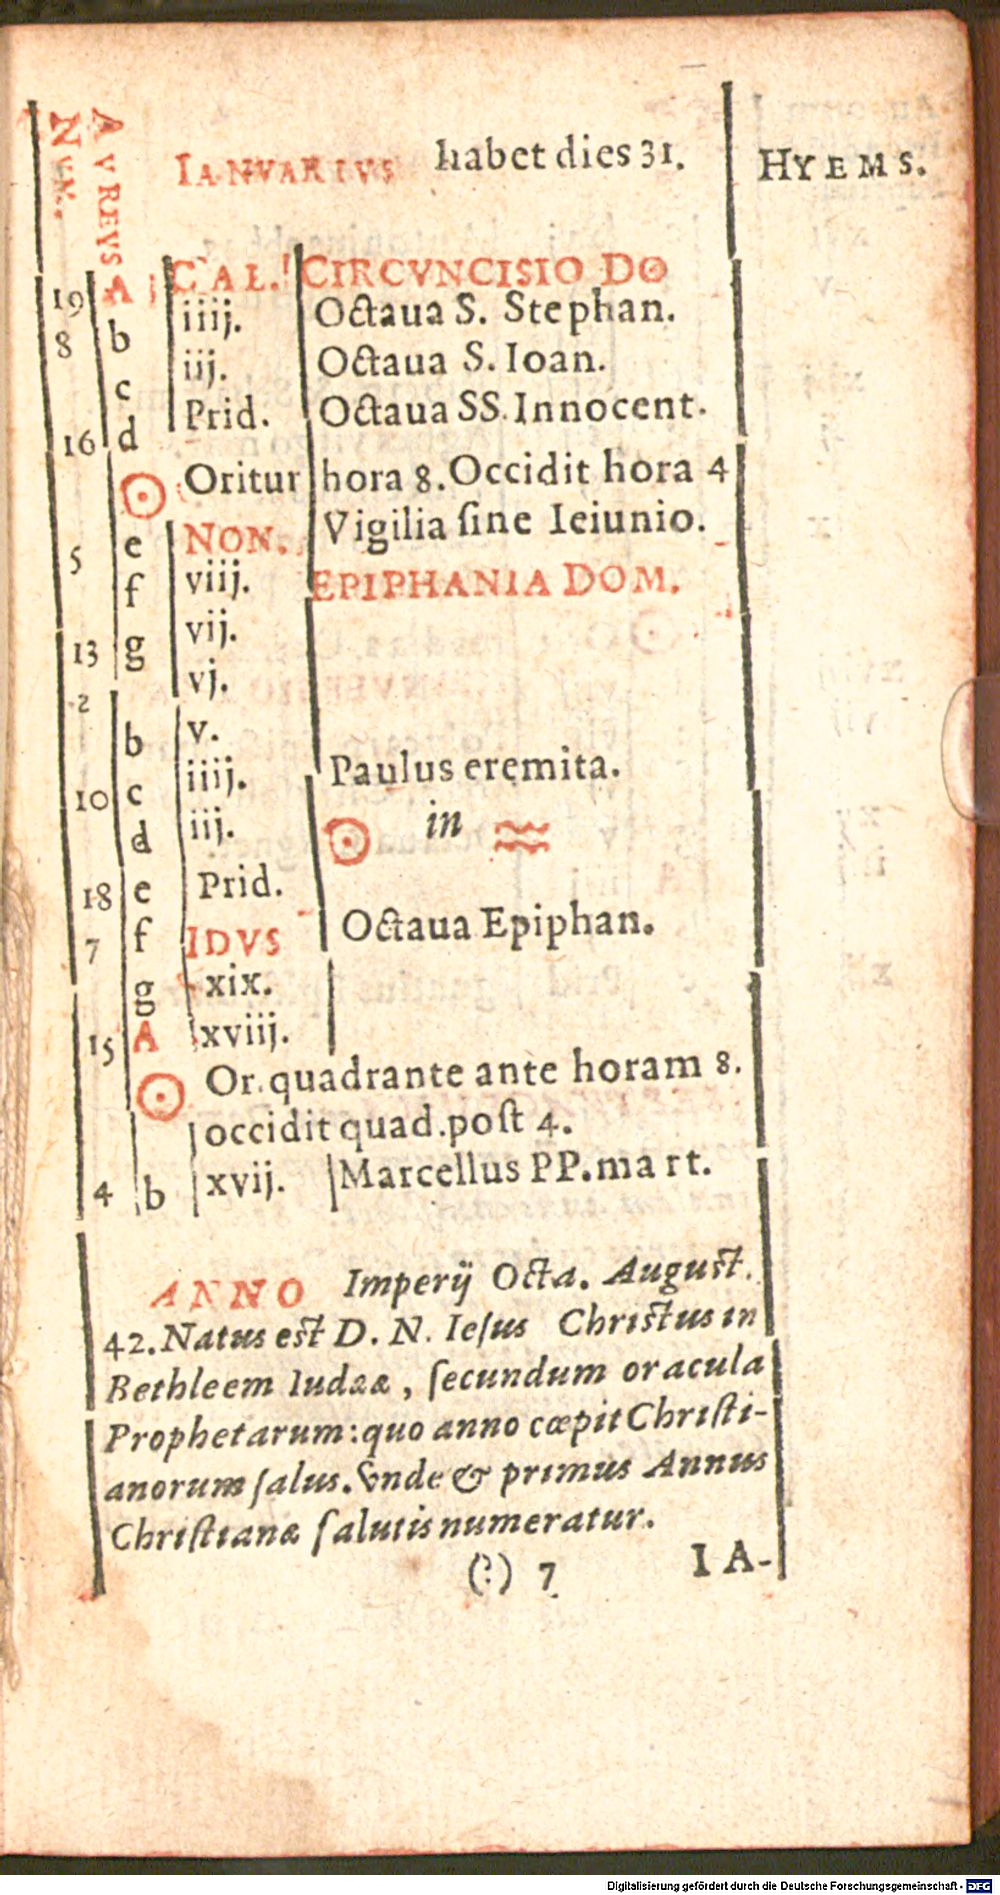 AVREVS NVM.
IANVARIVS habet dies 31. HYEMS.
19 A CAL. CIRCVNCISIO DO
8 b iiij. Octaua S. Stephan.
c iij. Octaua S. Ioan.
16 d Prid. Octaua SS. Innocent.
☉ Oritur hora 8. Occidit hora 4
5 e NON. Vigilia ſine Ieiunio.
f viij. EPIPHANIA DOM.
13 g vij.
2 vj.
b v.
10 c iiij. Paulus eremita.
d iij. ☉ in ♒
18 e Prid.
7 f IDVS Octaua Epiphan.
g xix.
15 A xviij.
☉ Or. quadrante ante horam 8.
occidit quad. poſt 4.
4 b xvij. Marcellus PP. mart.
ANNO Imperij Octa. Auguſt.
42. Natus eſt D. N. Ieſus Chriſtus in
Bethleem Iudææ, ſecundum oracula
Prophetarum: quo anno cœpit Chriſti-
anorum ſalus. Vnde & primus Annus
Chriſtianæ ſalutis numeratur.
(?) 7 IA-
Digitalisierung gefördert durch die Deutsche Forschungsgemeinschaft - DFG